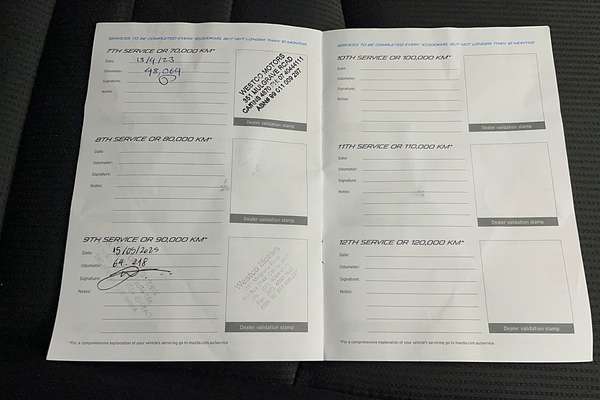 SERVICES TO BE COMPLETED EVERY 10,000KM, BUT NOT LONGER THAN 12 MONTHS
7TH SERVICE OR 70,000 KM*
Date: 13/4/23
Odometer: 48,064
Signature:
Notes:
WESTCO MOTORS
351 MULGRAVE ROAD
CAIRNS 4870
ABN# 99 011 009 297
Dealer validation stamp
8TH SERVICE OR 80,000 KM*
Date:
Odometer:
Signature:
Notes:
Dealer validation stamp
9TH SERVICE OR 90,000 KM*
Date: 15/05/2025
Odometer: 64 218
Signature:
Notes:
Westco Motors
Dealer validation stamp
*For a comprehensive explanation of your vehicle's servicing go to mazda.com.au/service
SERVICES TO BE COMPLETED EVERY 10,000KM, BUT NOT LONGER THAN 12 MONTHS
10TH SERVICE OR 100,000 KM*
Date:
Odometer:
Signature:
Notes:
Dealer validation stamp
11TH SERVICE OR 110,000 KM*
Date:
Odometer:
Signature:
Notes:
Dealer validation stamp
12TH SERVICE OR 120,000 KM*
Date:
Odometer:
Signature:
Notes:
Dealer validation stamp
*For a comprehensive explanation of your vehicle's servicing go to mazda.com.au/service